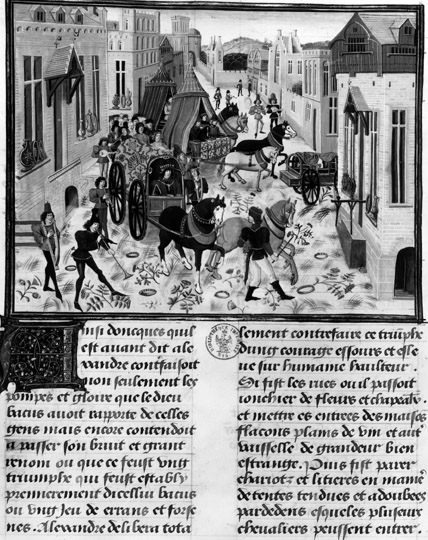 Ainsi doncques quil
est auant dit ale
xandre contrefaisoit
non seulement les
pompes et gloire que le dieu
bacus auoit rapporte de celles
gens mais encore contendoit
a passer son bruit et grant
renom ou que ce feust vng
triumphe qui feust estably
premierement dicellui bacus
ou vng Jeu de errans et forse
nes. Alexandre delibera tota
lement contrefaire ce triumphe
dung courage essours et esle
ue sur humaine haulteur.
Si fist les rues ou il passoit
ioncher de fleurs et chapeaux.
et mettre es entrees des maisons
flacons plains de vin et autre
vaisselle de grandeur bien
estrange. Puis fist parer
chariotz et litieres en maniere
de tentes tendues et adoubees
par dedens esqueles pluseurs
cheualiers peussent entrer.